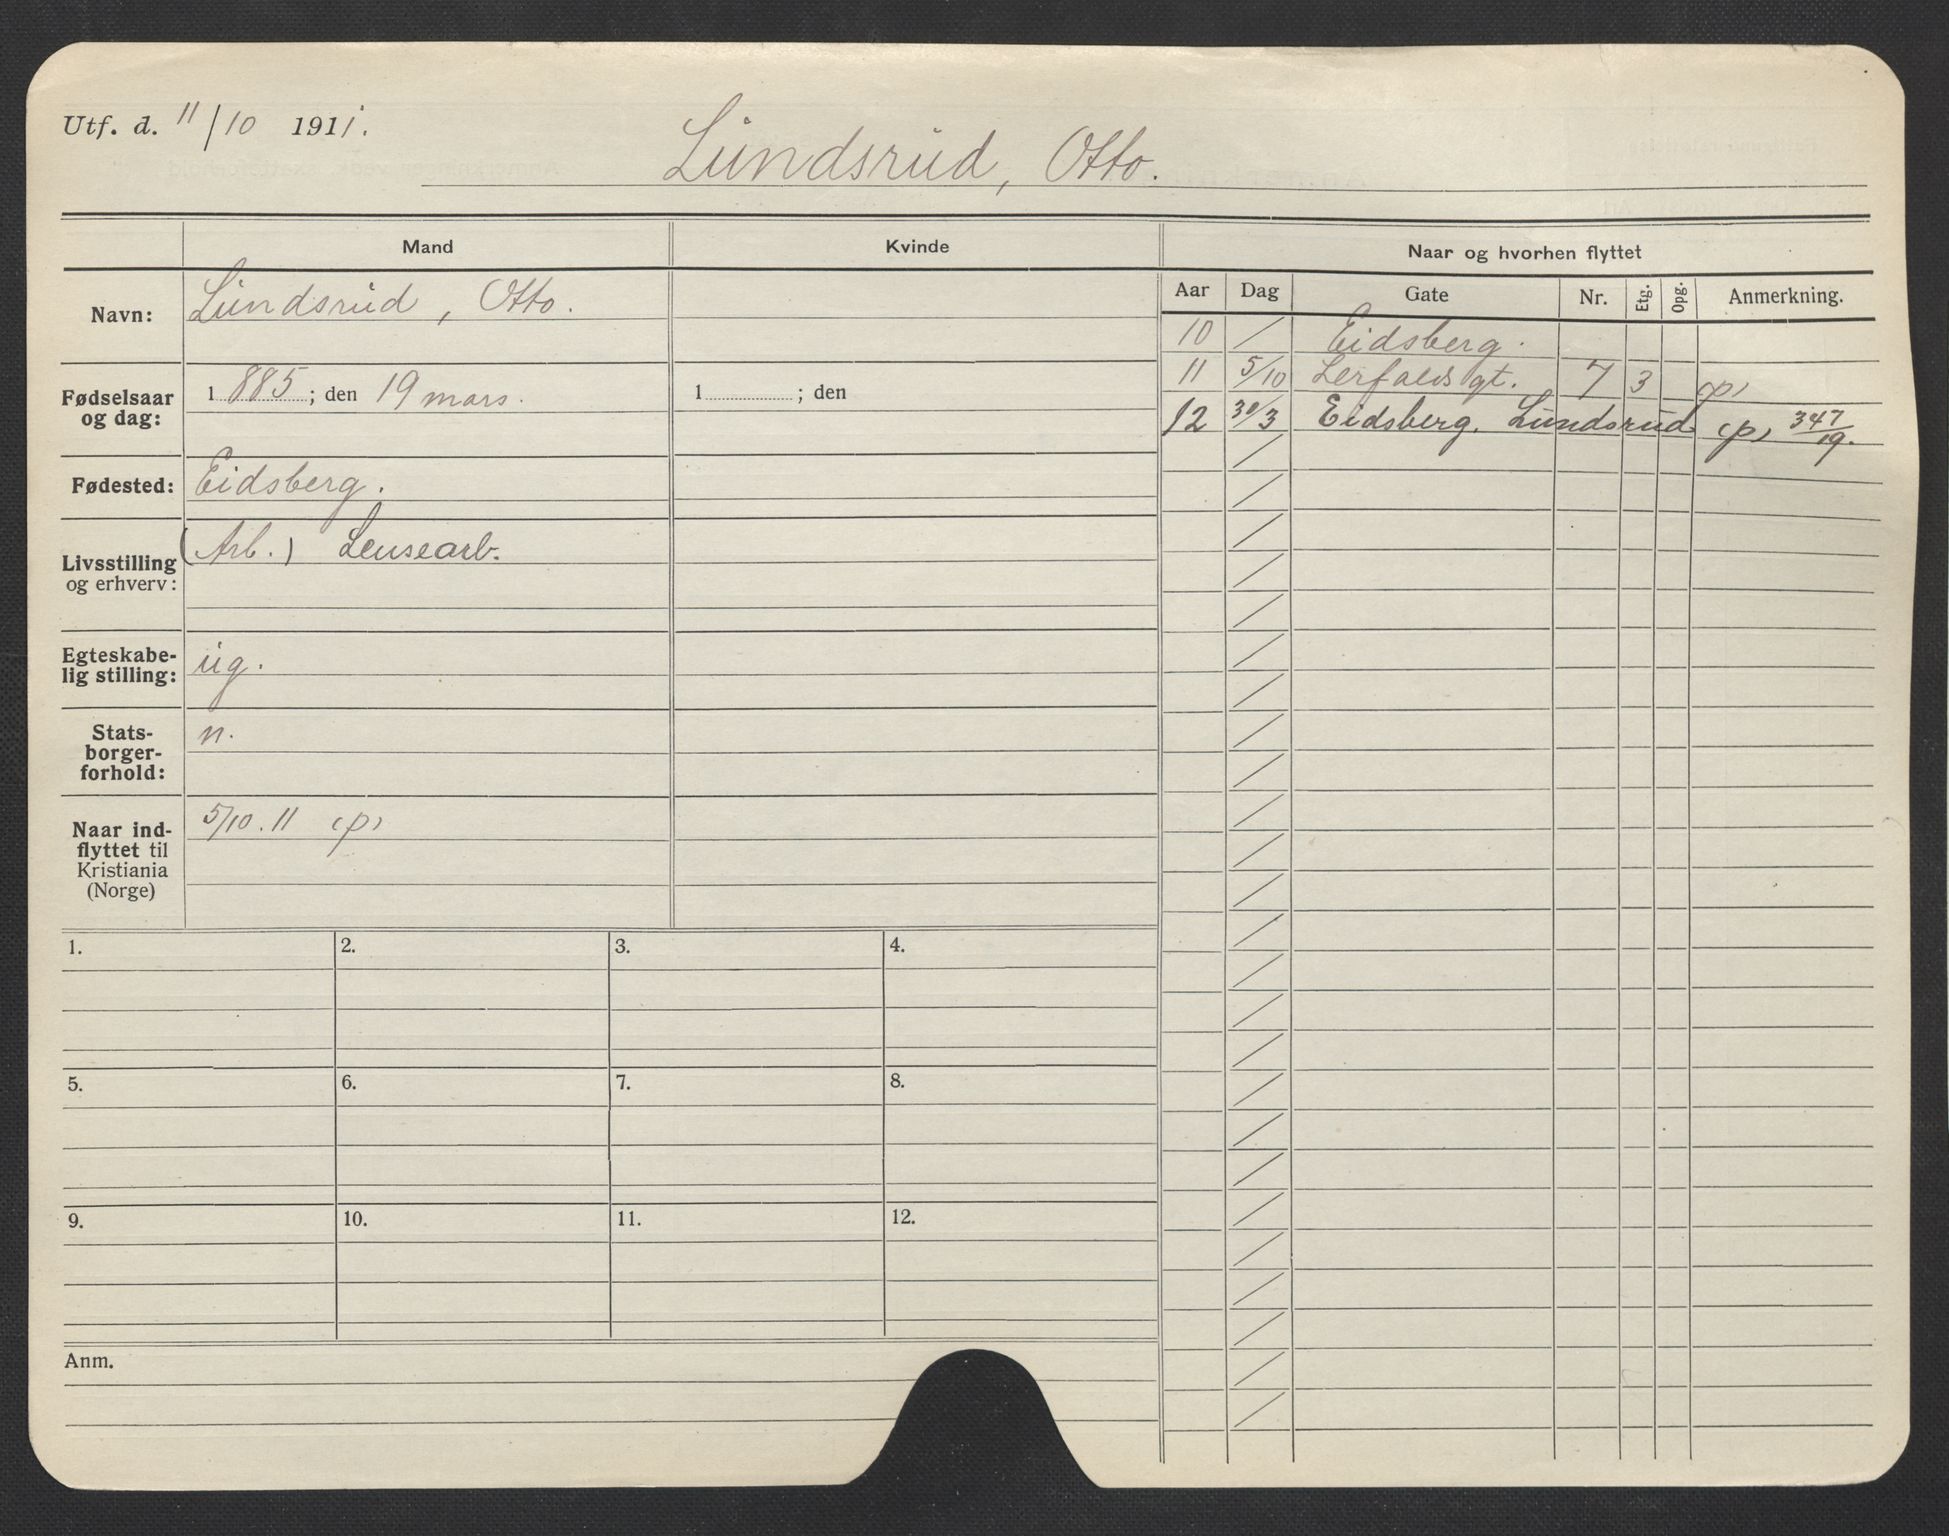 Utf. d. 11/10 1911.
Lundsrud, Otto.
Mand Kvinde Naar og hvorhen flyttet
Aar Dag Gate Nr. Etg. Opg. Anmerkning.
Navn: Lundsrud, Otto.
Fødselsaar og dag: 1885; den 19 mars. 1 ; den
Fødested: Eidsberg.
Livsstilling og erhverv: (Arb.) Lensearb.
Egteskabe-
lig stilling: ug.
Stats-
borger-
forhold: n.
Naar ind-
flyttet til
Kristiania
(Norge) 5/10.11 (p)
10 / Eidsberg.
11 5/10 Lerfaldsgt. 7 3 (p)
12 30/3 Eidsberg. Lundsrud (p) 347/19.
1. 2. 3. 4.
5. 6. 7. 8.
9. 10. 11. 12.
Anm.